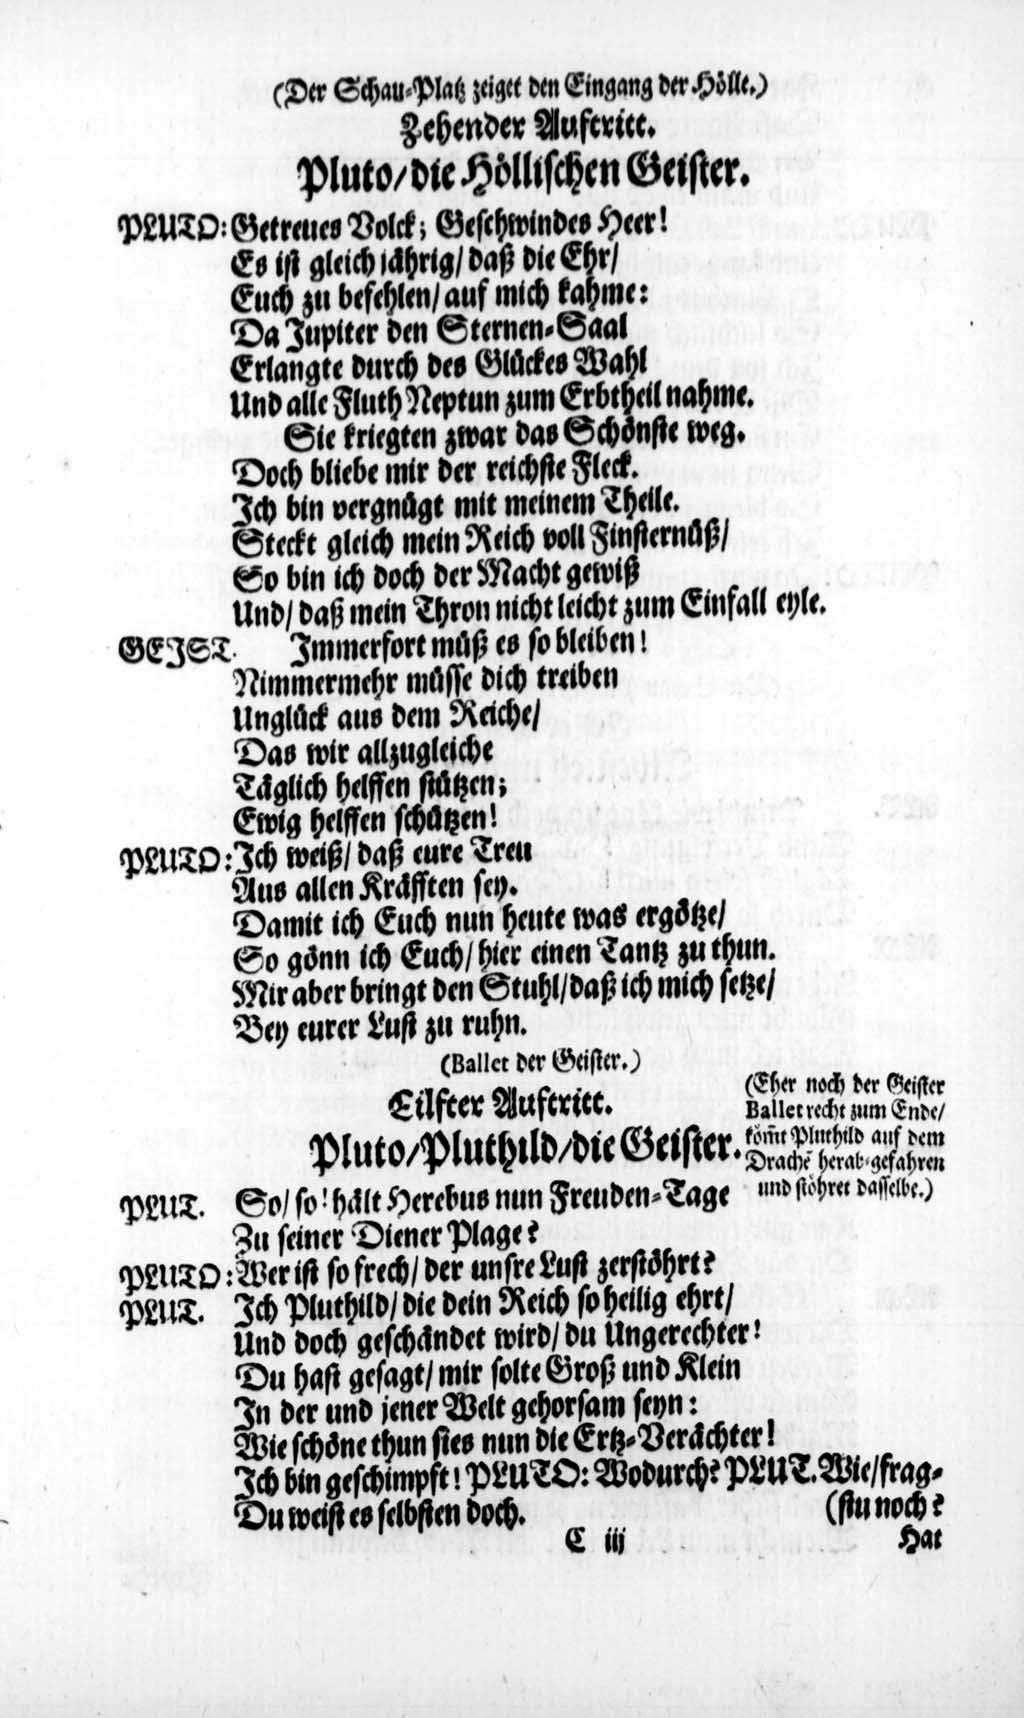 (Der Schau-Platz zeiget den Eingang der Hölle.)
Zehender Auftritt.
Pluto/die Höllischen Geister.
PLUTO: Getreues Volck; Geschwindes Heer!
Es ist gleich jährig/ daß die Ehr/
Euch zu befehlen/ auf mich kahme:
Da Jupiter den Sternen-Saal
Erlangte durch des Glückes Wahl
Und alle Fluth Neptun zum Erbtheil nahme.
Sie kriegten zwar das Schönste weg.
Doch bliebe mir der reichste Fleck.
Ich bin vergnügt mit meinem Theile.
Steckt gleich mein Reich voll Finsternüß/
So bin ich doch der Macht gewiß
Und/ daß mein Thron nicht leicht zum Einfall eyle.
GEIST. Immerfort müß es so bleiben!
Nimmermehr müsse dich treiben
Unglück aus dem Reiche/
Das wir allzugleiche
Täglich helffen stützen;
Ewig helffen schützen!
PLUTO: Ich weiß/ daß eure Treu
Aus allen Kräfften sey.
Damit ich Euch nun heute was ergötze/
So gönn ich Euch/ hier einen Tantz zu thun.
Mir aber bringt den Stuhl/daß ich mich setze/
Bey eurer Lust zu ruhn.
(Ballet der Geister.)
Eilfter Auftritt.
Pluto/Pluthild/die Geister.
(Eher noch der Geister
Ballet recht zum Ende/
köm̄t Pluthild auf dem
Drachē herab-gefahren
und stöhret dasselbe.)
PLUT. So/ so! hält Herebus nun Freuden-Tage
Zu seiner Diener Plage?
PLUTO: Wer ist so frech/ der unsre Lust zerstöhrt?
PLUT. Ich Pluthild/ die dein Reich so heilig ehrt/
Und doch geschändet wird/ du Ungerechter!
Du hast gesagt/ mir solte Groß und Klein
In der und jener Welt gehorsam seyn:
Wie schöne thun sies nun die Ertz-Verächter!
Ich bin geschimpft! PLUTO: Wodurch? PLUT. Wie/frag-
Du weist es selbsten doch. (stu noch?
C iij Hat